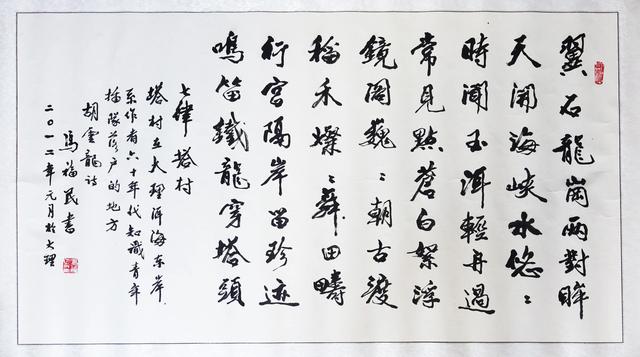 翼石龍崗兩對眸
天開海峽水悠〻
時聞玉洱輕舟過
常見點蒼白絮浮
鏡閣巍〻朝古渡
稻禾燦〻舞田疇
行宮隔岸留珍迹
鳴笛鐵龍穿塔頭
七律 塔村
塔村在大理洱海东岸
系作者六十年代知識青年
插隊落户的地方
胡雲龍詩
馮福民書
二〇一二年元月於大理